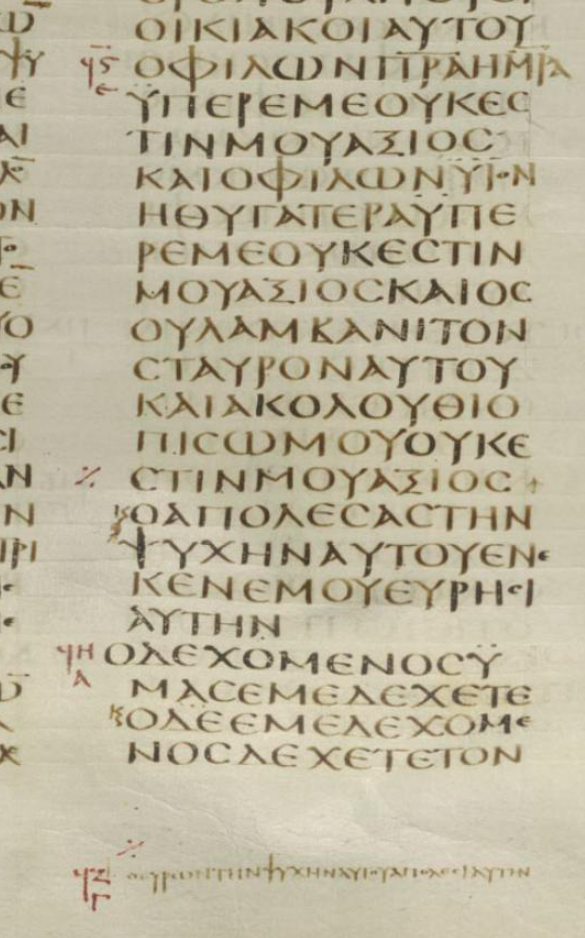 ΟΙΚΙΑΚΟΙΑΥΤΟΥ
ϤϚ ΟΦΙΛΩΝΠΡΑΗΜΡΑ
Ε ΫΠΕΡΕΜΕΟΥΚΕϹ
ΤΙΝΜΟΥΑΞΙΟϹ
ΚΑΙΟΦΙΛΩΝΫΪΟΝ
ΗΘΥΓΑΤΕΡΑΫΠΕ
ΡΕΜΕΟΥΚΕϹΤΙΝ
ΜΟΥΑΞΙΟϹΚΑΙΟϹ
ΟΥΛΑΜΒΑΝΙΤΟΝ
ϹΤΑΥΡΟΝΑΥΤΟΥ
ΚΑΙΑΚΟΛΟΥΘΙΟ
ΠΙϹΩΜΟΥΟΥΚΕ
⁒ ϹΤΙΝΜΟΥΑΞΙΟϹ
ΚΟΑΠΟΛΕϹΑϹΤΗΝ
ΨΥΧΗΝΑΥΤΟΥΕΝΕ
ΚΕΝΕΜΟΥΕΥΡΗϹΙ
ΑΥΤΗΝ
ϤΗ ΟΔΕΧΟΜΕΝΟϹΫ
Α ΜΑϹΕΜΕΔΕΧΕΤΕ
ΚΟΔΕΕΜΕΔΕΧΟΜΕ
ΝΟϹΔΕΧΕΤΕΤΟΝ
⁒
ϤΖ ΟΕΥΡΩΝΤΗΝΨΥΧΗΝΑΥΤΟΥΑΠΟΛΕϹΙΑΥΤΗΝ
Γ